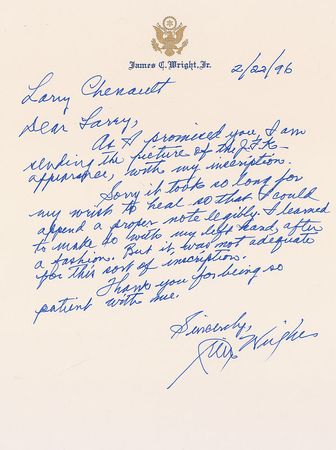 James C. Wright, Jr.
2/22/96
Larry Chenault
Dear Larry,
As I promised you, I am
sending the picture of the J.F.K.
appearance, with my inscription.
Sorry it took so long for
my wrist to heal so that I could
append a proper note legibly. I learned
to make do with my left hand, after
a fashion. But it was not adequate
for this sort of inscription.
Thank you for being so
patient with me.
Sincerely,
Jim Wright